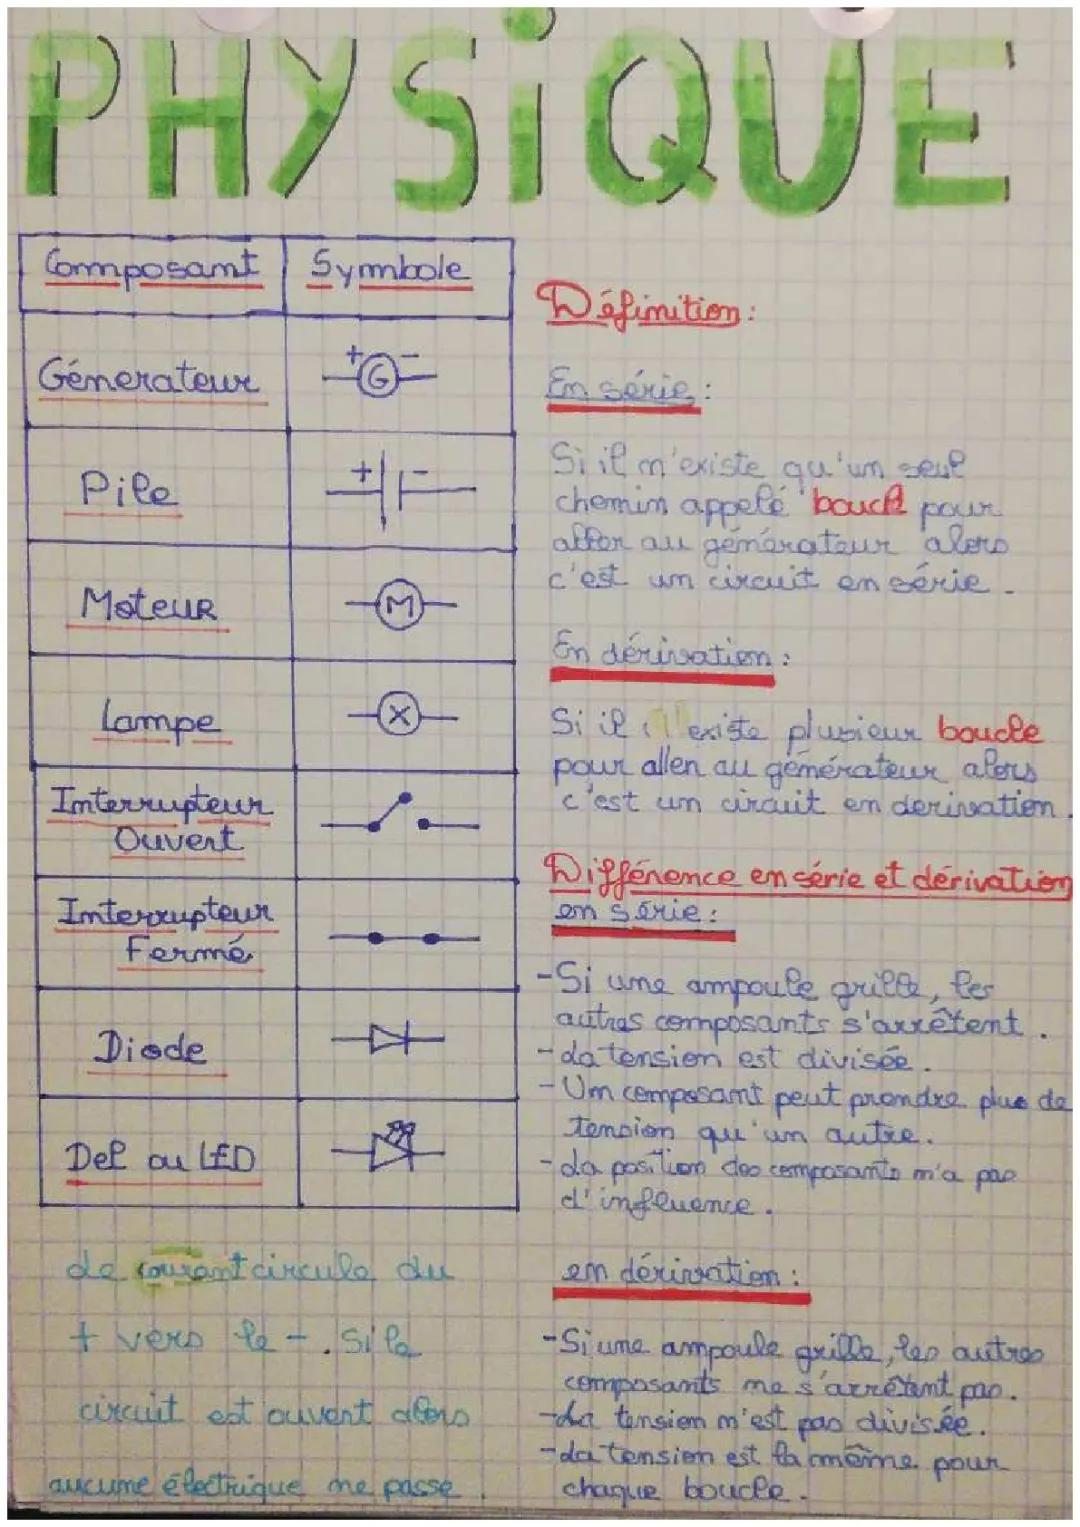 PHYSIQUE
Composant
Symbole
Génerateur
+ G -
Pile
+ -
Moteur
M
Lampe
Interrupteur
Ouvert
Interrupteur
Fermé
Diode
Del ou LED
Le courant circule du
+ vers le -. Si le
circuit est ouvert alors
aucune électrique ne passe.
Définition:
En série:
Si il n'existe qu'un seul
chemin appelé boucle pour
aller au générateur alors
c'est un circuit en série.
En dérivation:
Si il existe plusieur boucle
pour aller au générateur alors
c'est un circuit en derivation.
Différence en série et dérivation
en série:
-Si une ampoule grille, les
autres composants s'arrêtent.
-La tension est divisée.
-Un composant peut prendre plus de
tension qu'un autre.
-La position des composants n'a pas
d'influence.
en dérivation:
-Si une ampoule grille, les autres
composants ne s'arrêtent pas.
-La tension n'est pas divisée.
-La tension est la même pour
chaque boucle.